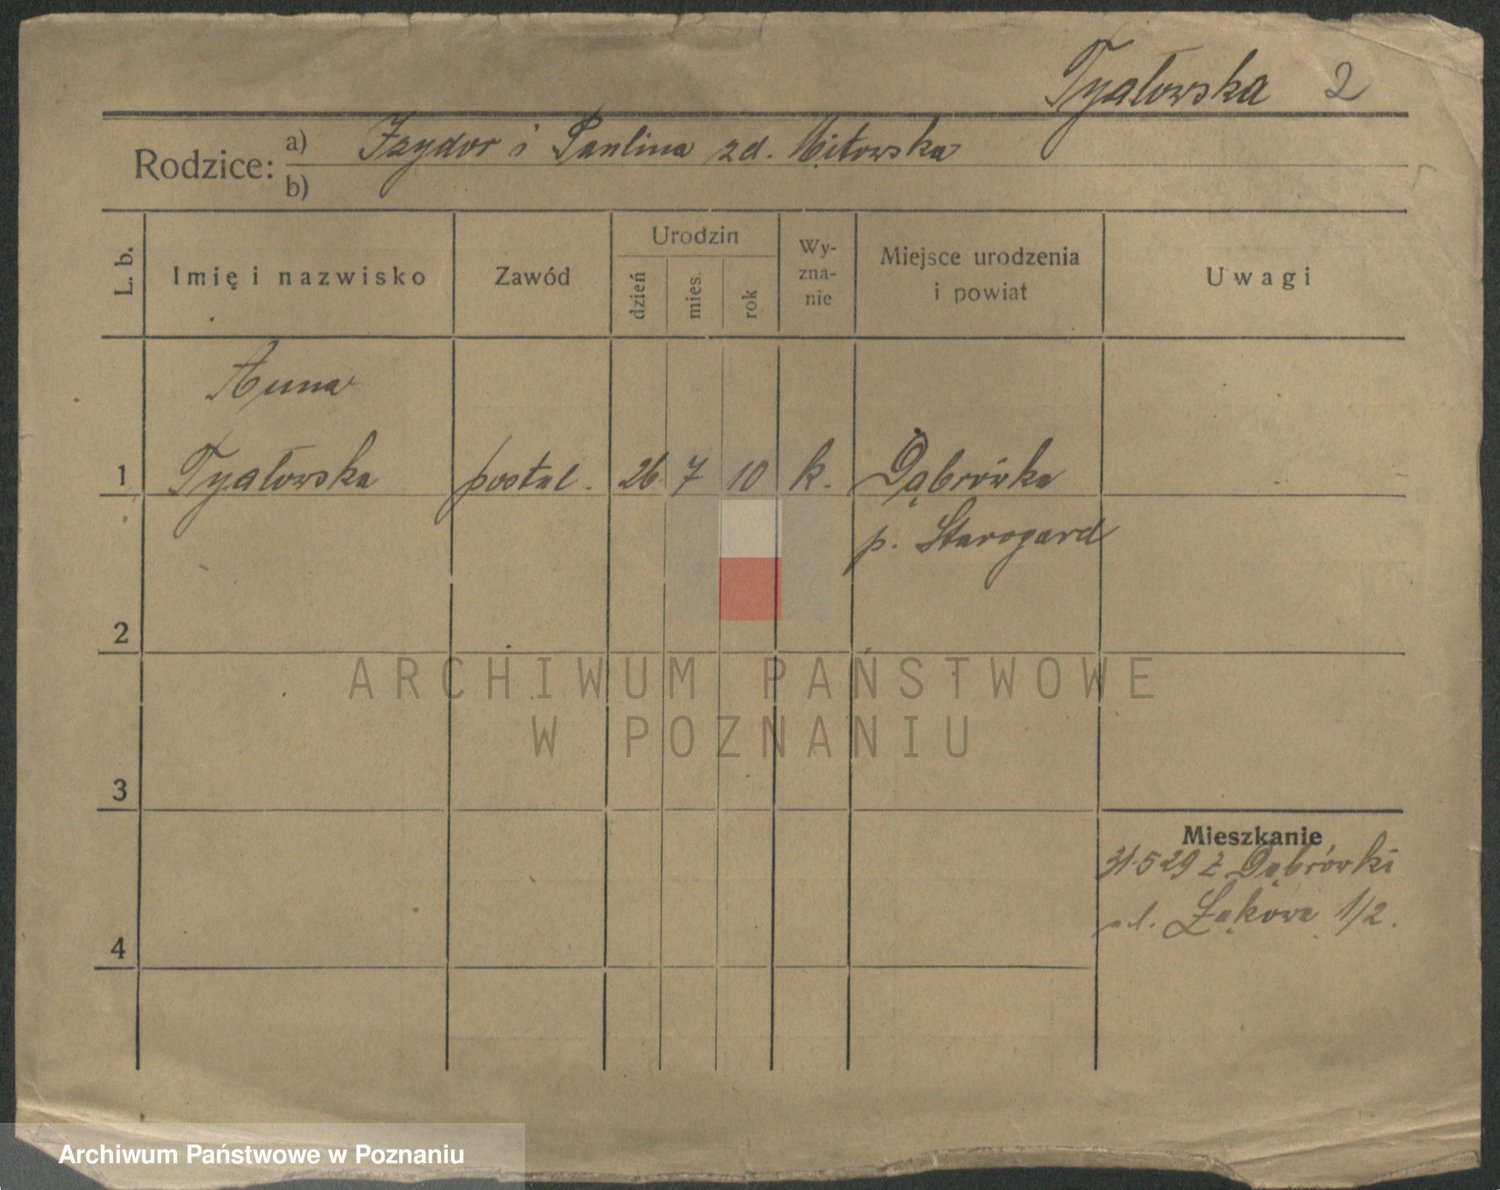 Tyałowska 2
Rodzice: a) Izydor i Paulina zd. Miłowska
b)
L. b. Imię i nazwisko Zawód Urodzin dzień mies. rok Wy-zna-nie Miejsce urodzenia i powiat Uwagi
Anna
1 Tyałowska postul. 26 7 10 k. Dąbrówka
p. Starogard
2
ARCHIWUM PAŃSTWOWE
W POZNANIU
3
Mieszkanie
31.5 29 z Dąbrówki
ul. Łąkowa 1/2.
4
Archiwum Państwowe w Poznaniu